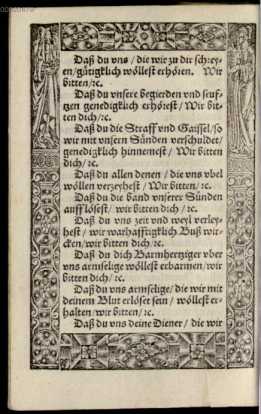 Daß du vns / die wir zu dir schrey-
en/gütigklich wöllest erhören. Wir
bitten/ꝛc.
Daß du vnsere begierden vnd seuf-
tzen genedigklich erhörest / Wir bit-
ten dich/ꝛc.
Daß du die Straff vnd Gaissel/so
wir mit vnsern Sünden verschuldet/
genedigklich hinnemest / Wir bitten
dich / ꝛc.
Daß du allen denen / die vns vbel
wöllen verzeyhest / Wir bitten / ꝛc.
Daß du die band vnserer Sünden
aufflösest / wir bitten dich / ꝛc.
Daß du vns zeit vnd weyl verley-
hest / wir warhafftigklich Buß wir-
cken/wir bitten dich/ꝛc.
Daß du dich Barmhertziger vber
vns armselige wöllest erbarmen/wir
bitten dich / ꝛc.
Daß du vns armselige/ die wir mit
deinem Blut erlöset sein / wöllest er-
halten/wir bitten/ꝛc.
Daß du vns deine Diener / die wir